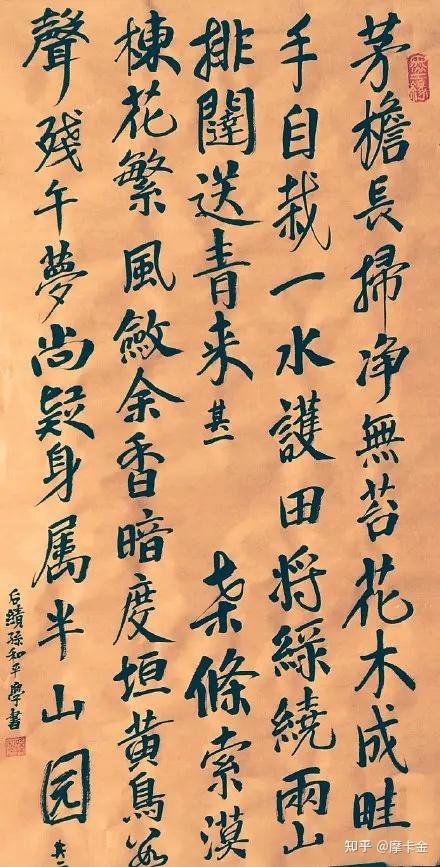 茅檐長掃净無苔花木成畦
手自栽一水護田将緑繞兩山
排闥送青来其一桒條索漠
楝花繁風斂余香暗度垣黄鳥数
聲殘午夢尚疑身属半山园其二
后績孫和平學書
知乎 @摩卡金